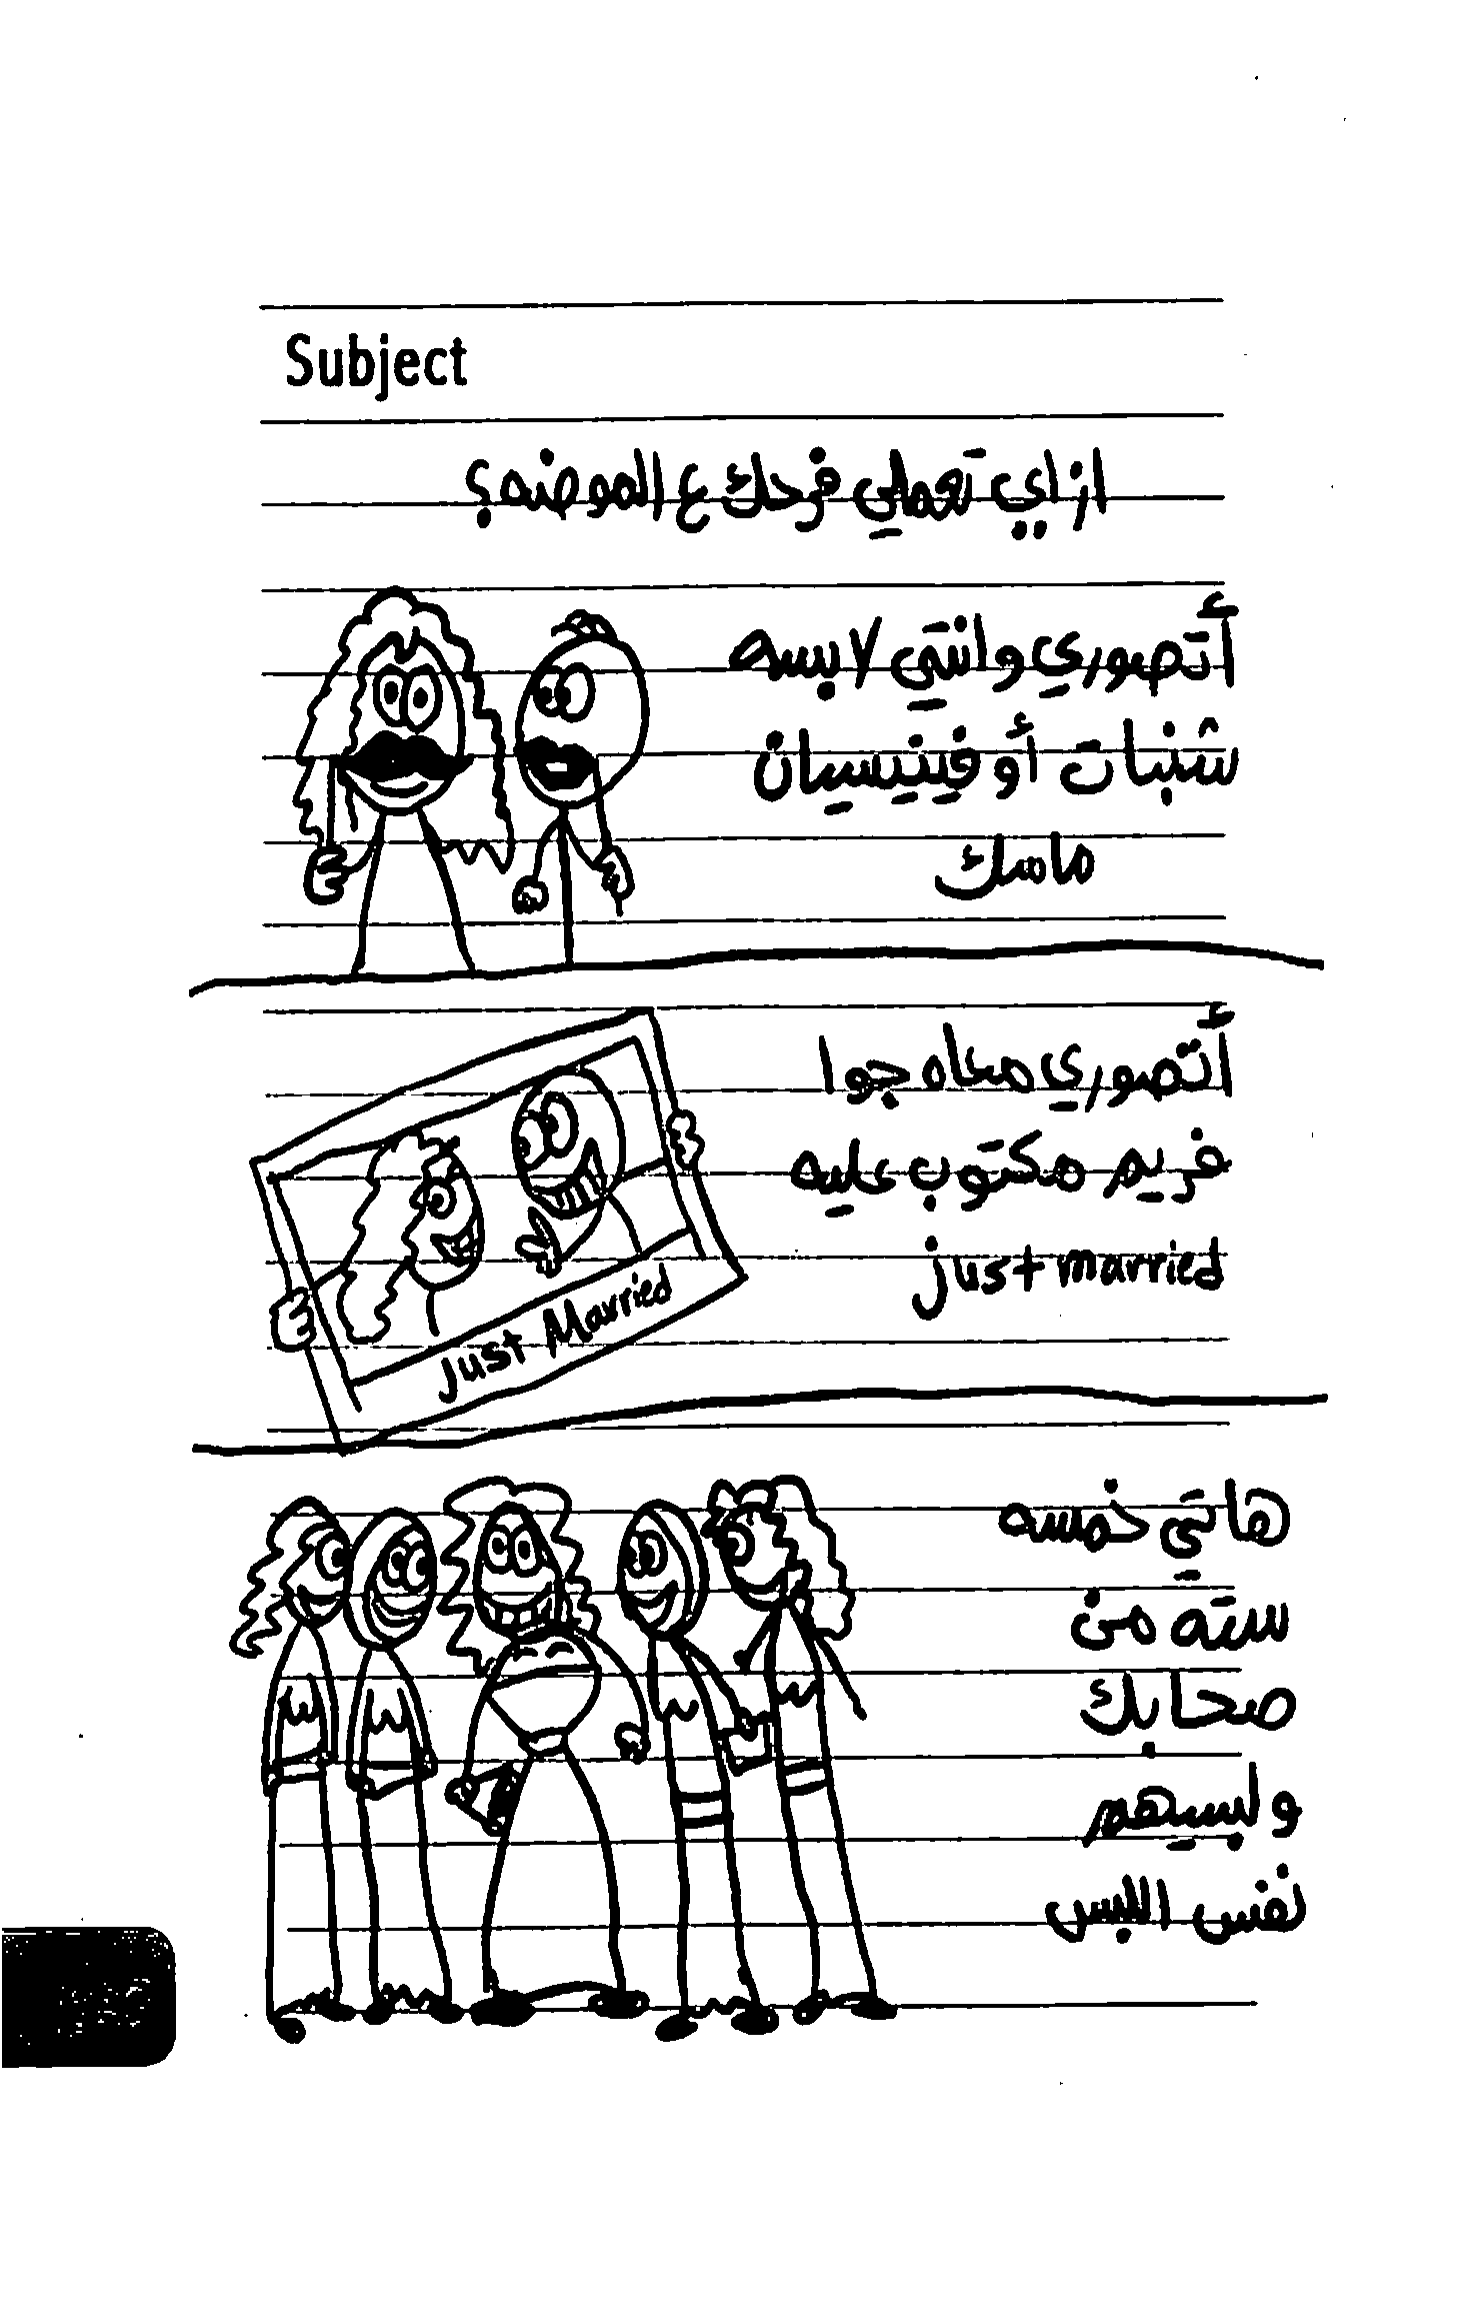 Subject
ازاي تعملي فرحك ع الموضه؟
أتصوري وانتي لابسه
شنبات أو فينيسيان
ماسك
أتصوري معاه جوا
فريم مكتوب عليه
just married
Just Married
هاتي خمسه
سته من
صحابك
ولبسيهم
نفس اللبس